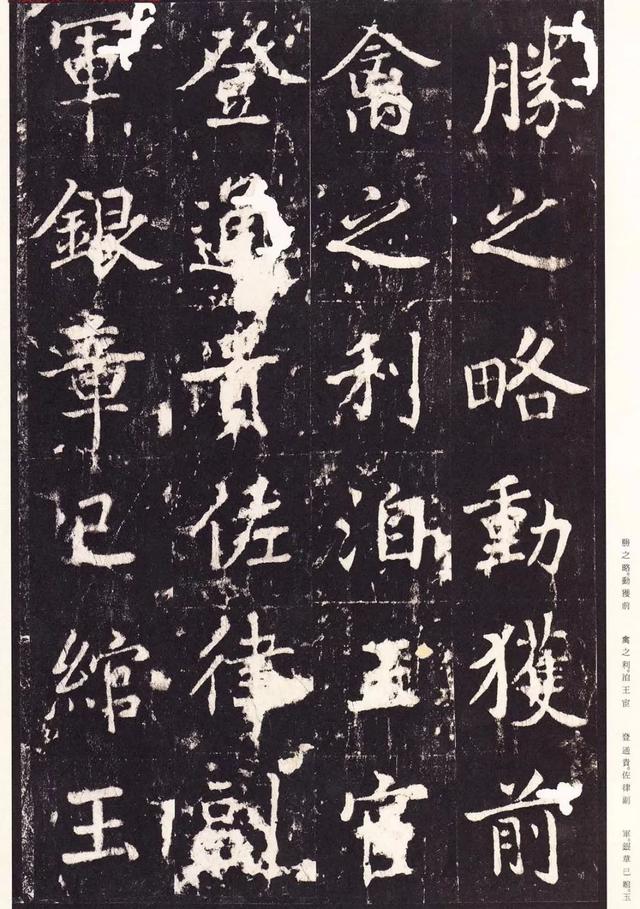 勝之略動獲前
禽之利洎王官
登通貴佐律副
軍銀章已綰王
勝之略。動獲前　禽之利。洎王宦　登通貴。佐律副　軍。銀章已綰。玉